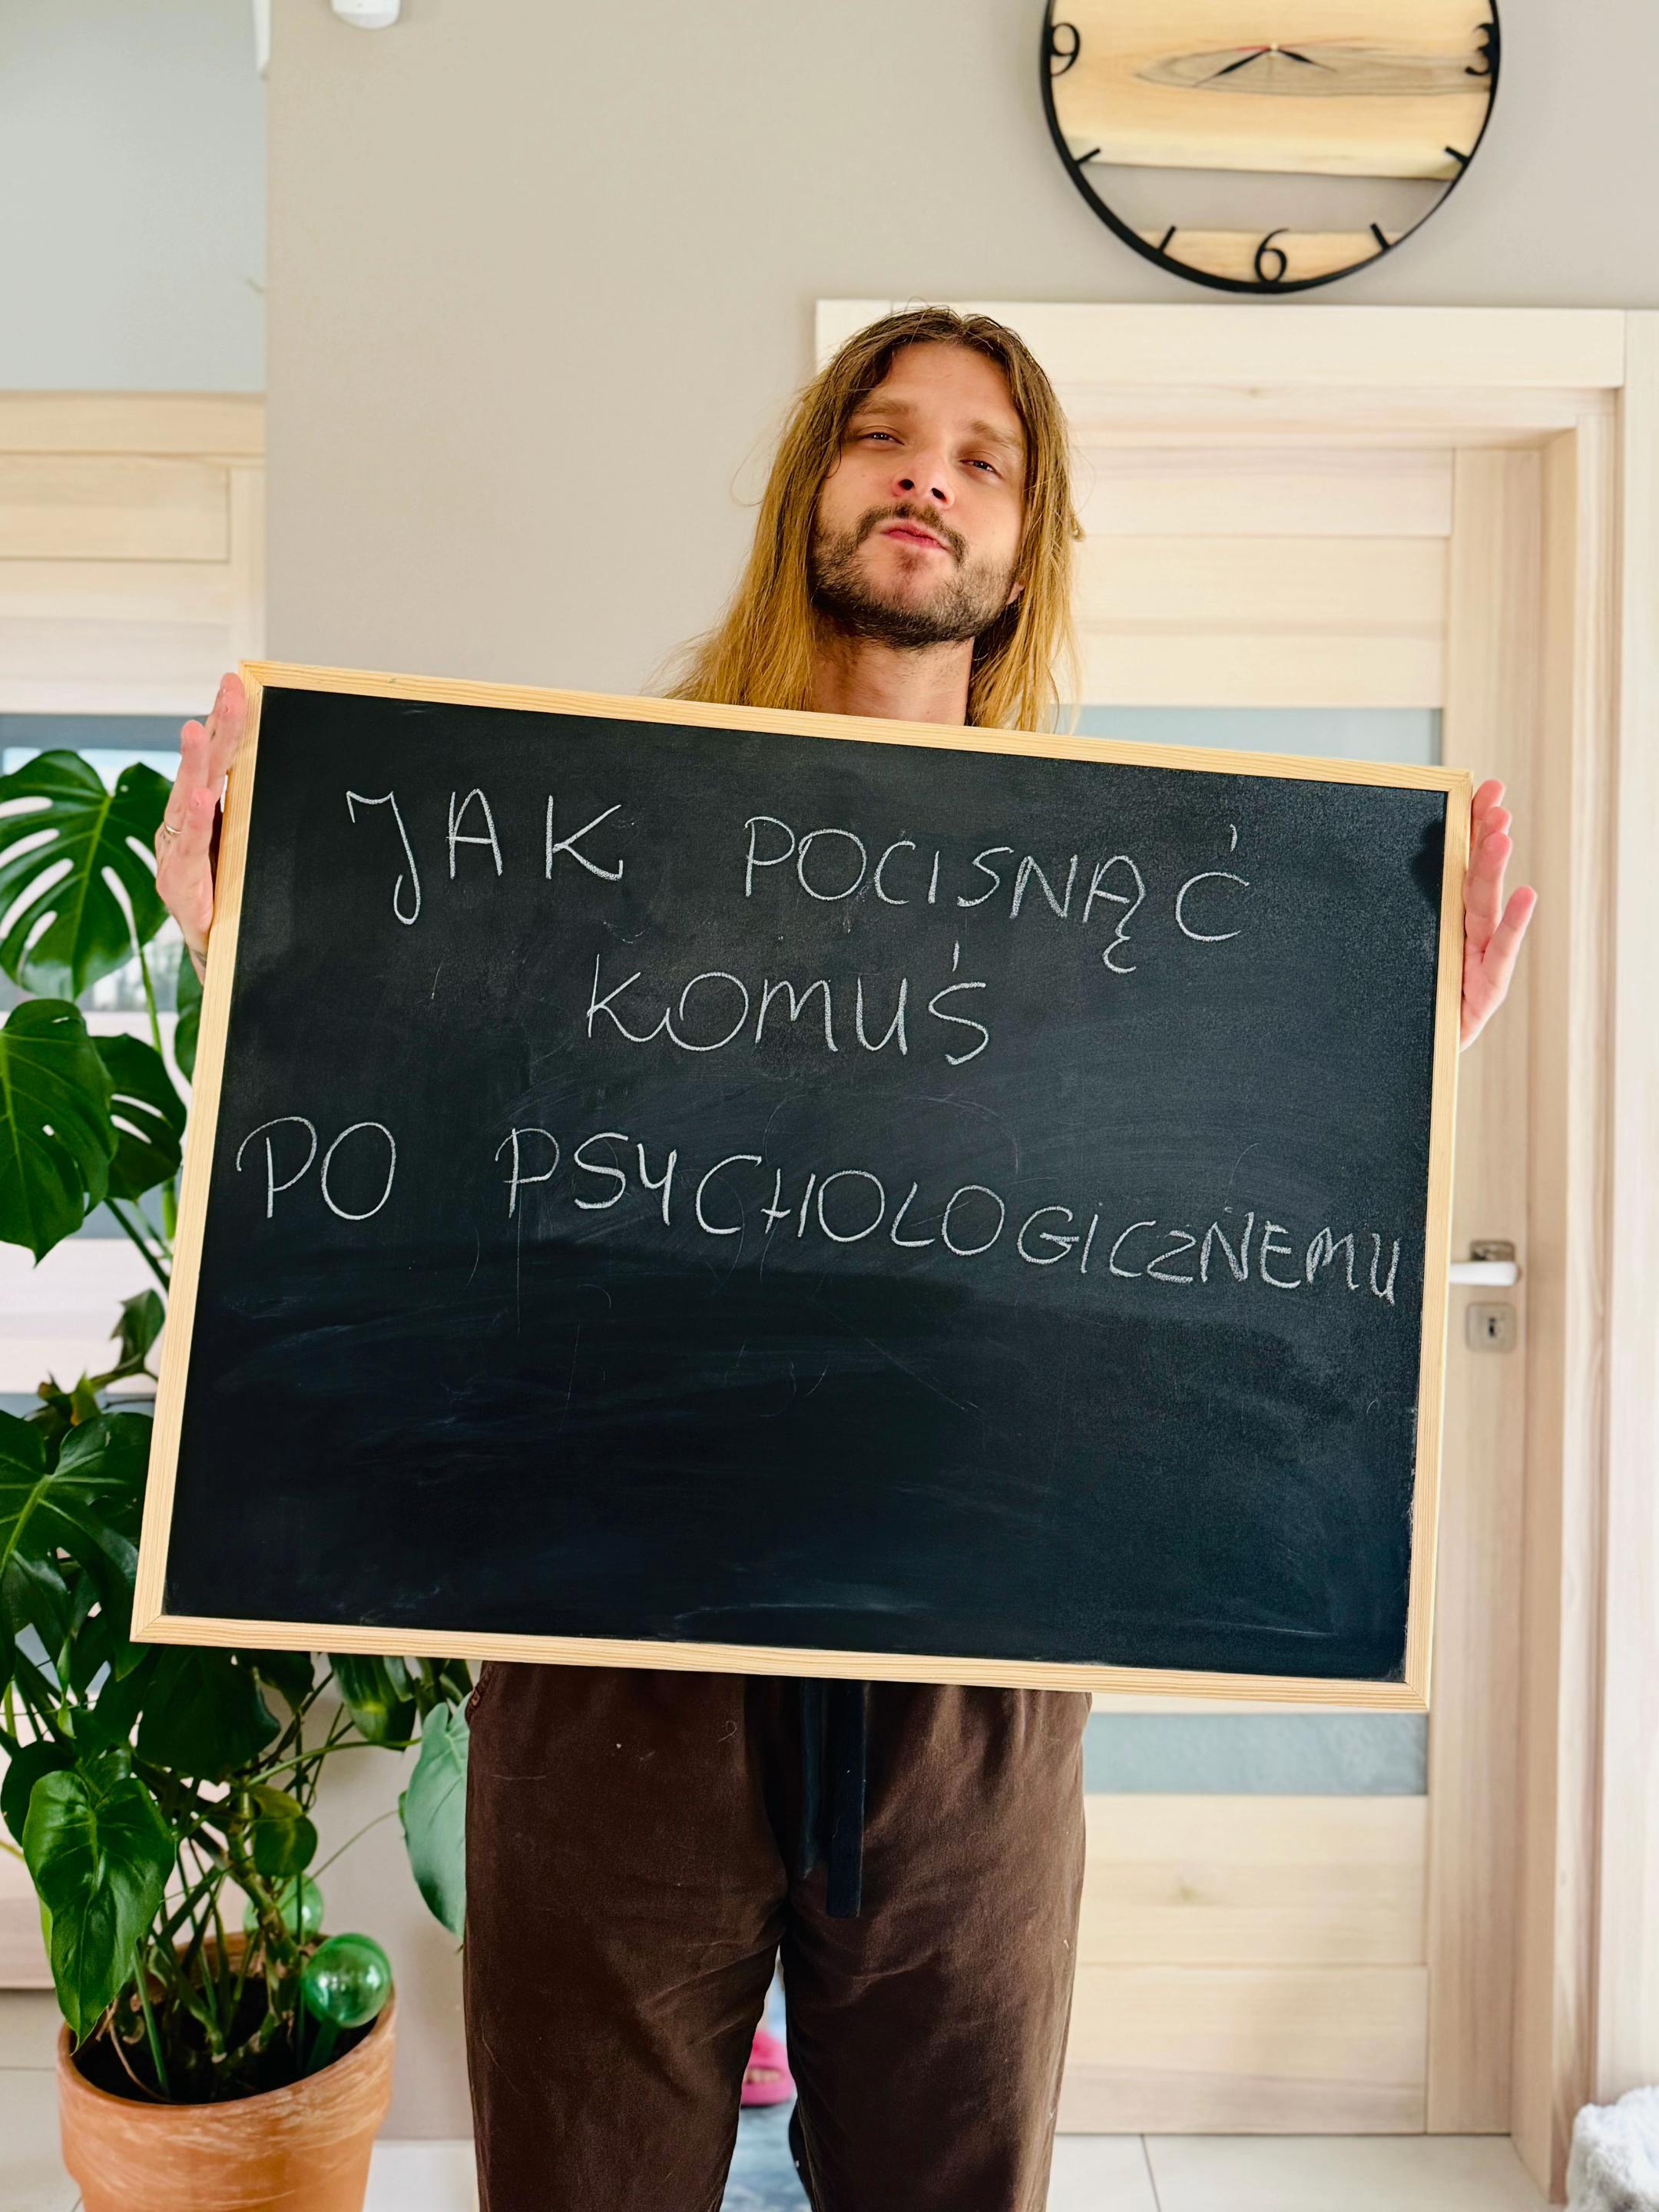 9 3
6
JAK POCISNĄĆ
KOMUŚ
PO PSYCHOLOGICZNEMU